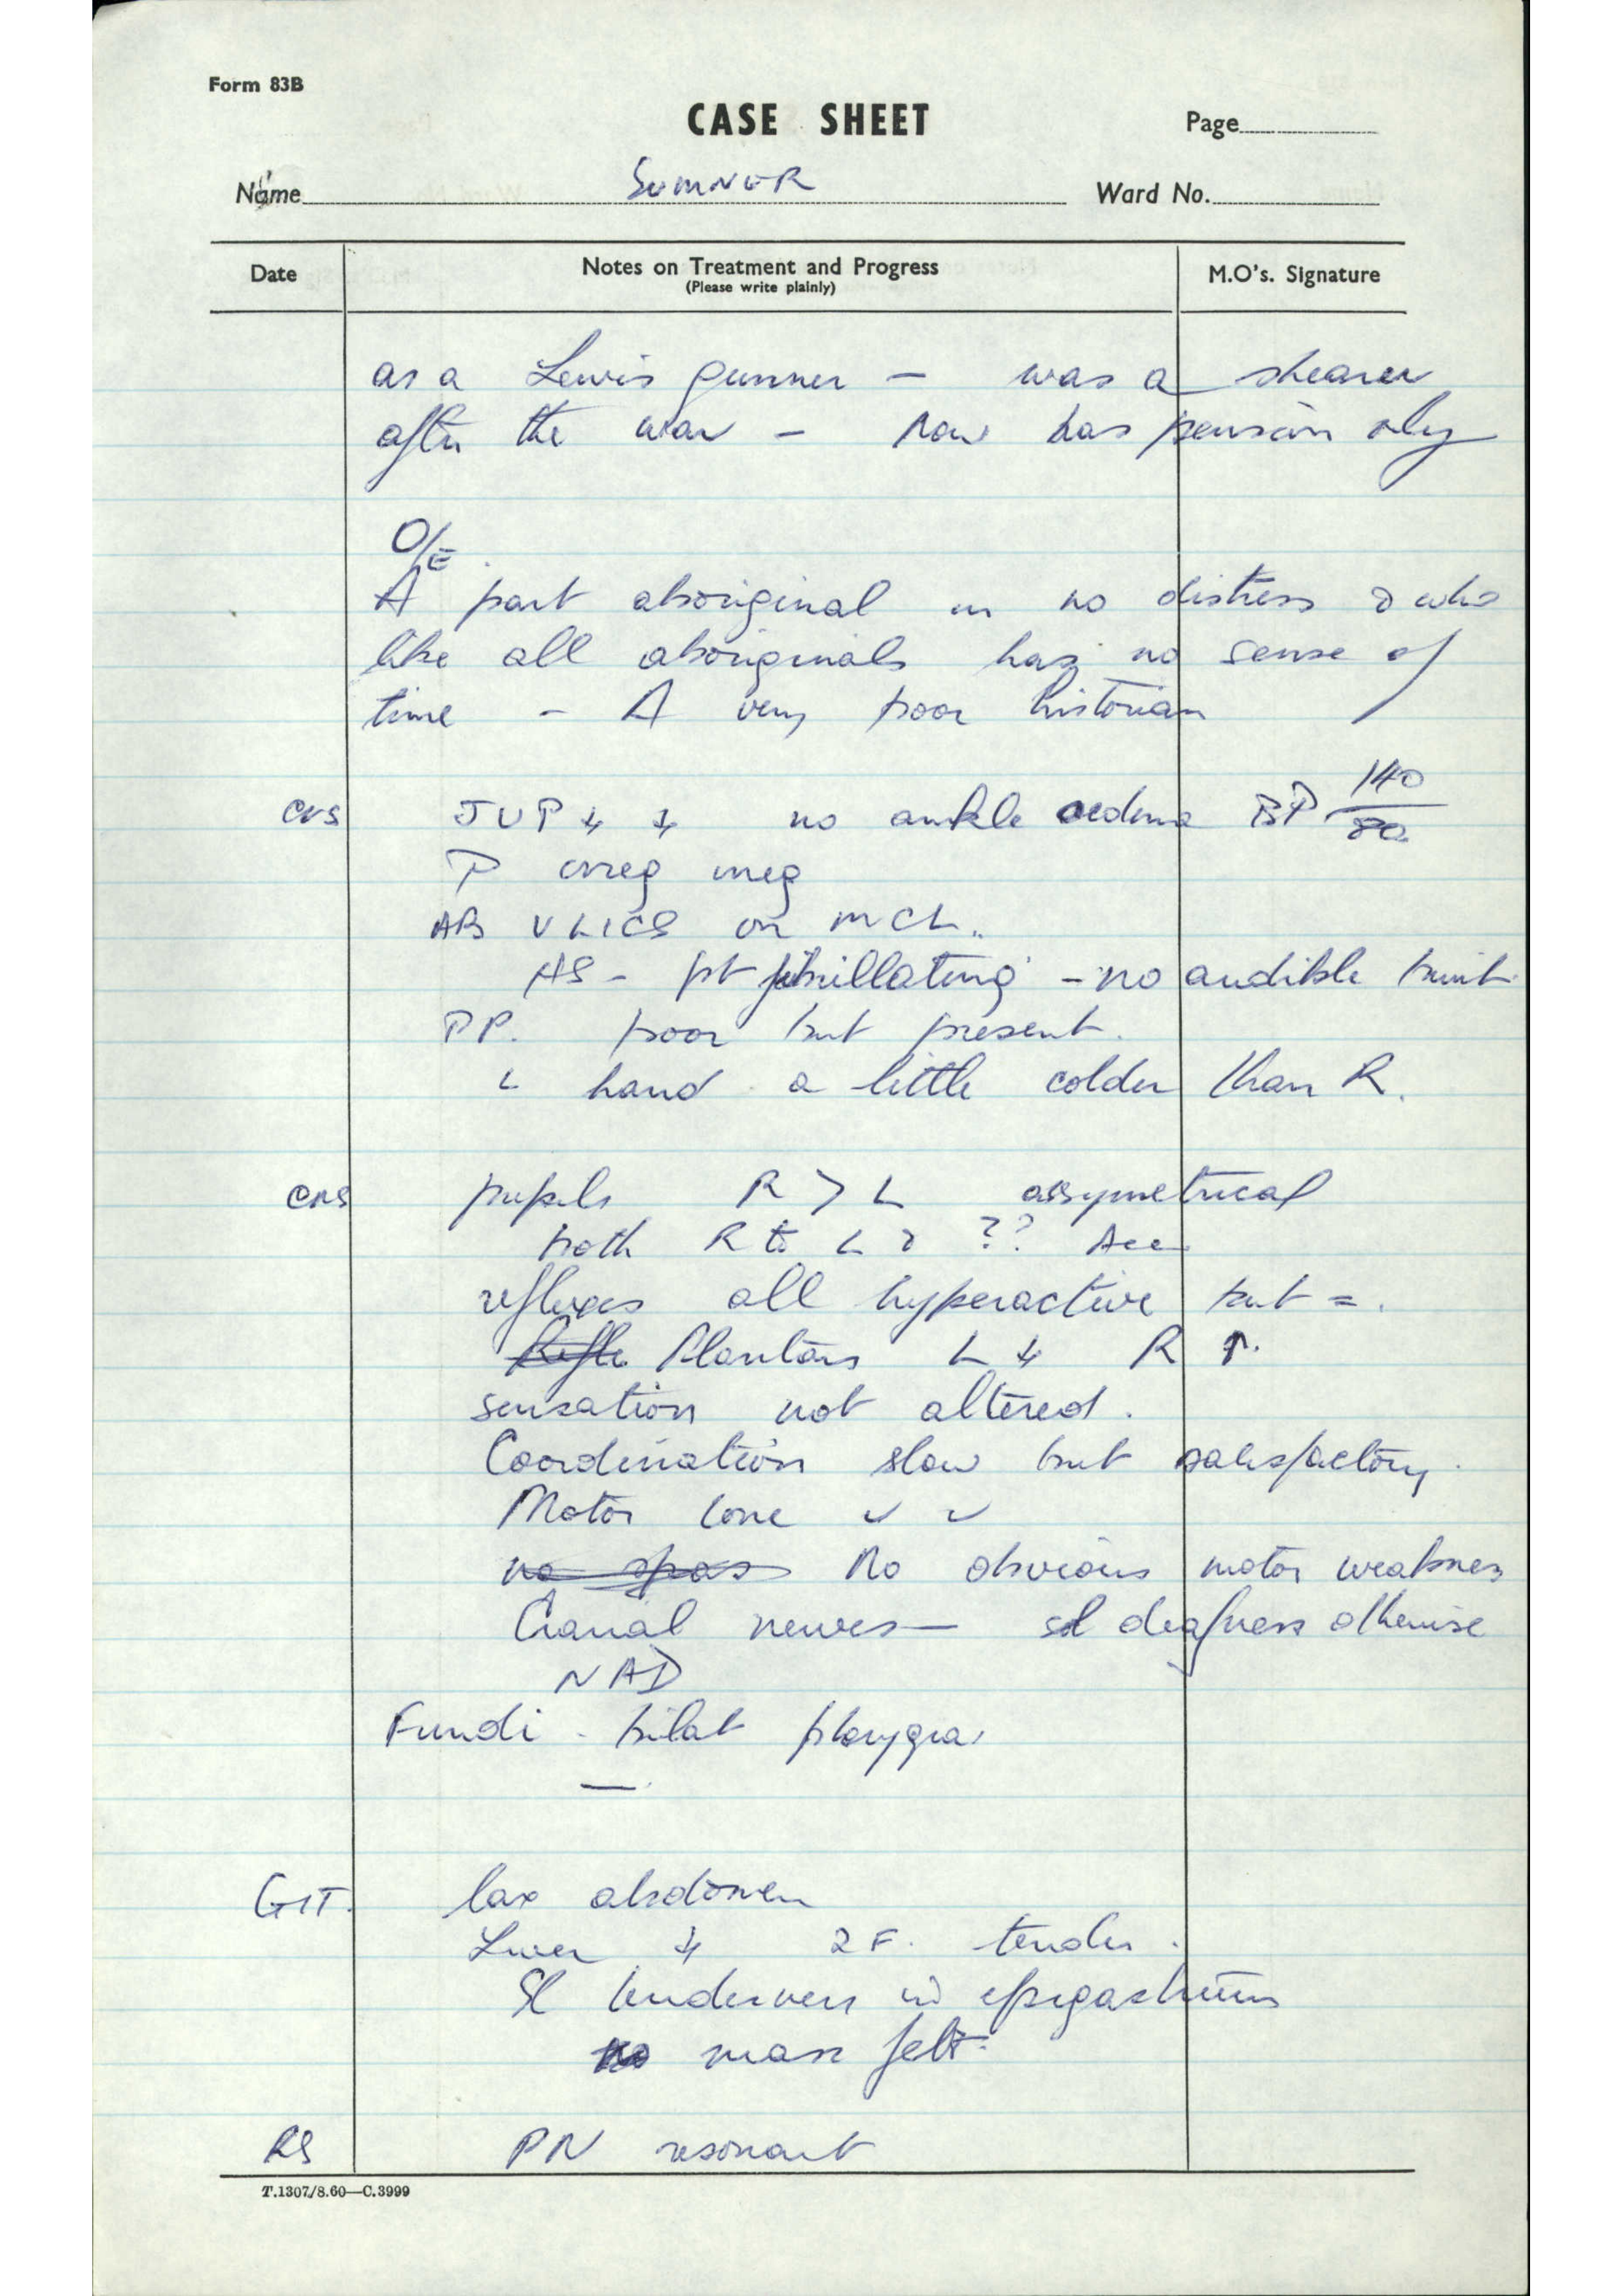 Form 83B
CASE SHEET
Page
Name SUMNER Ward No.
Date Notes on Treatment and Progress M.O's. Signature
(Please write plainly)
as a Lewis gunner – was a shearer
after the war – now has pension only
O/E
A part aboriginal in no distress & who
like all aboriginals has no sense of
time – A very poor historian
CVS JVP ↓ ↓ no ankle oedma BP 140/80
P irreg irreg
AB V LICS on MCL.
HS – pt fibrillating – no audible bruit
PP. poor but present.
L hand a little colder than R.
CNS pupils R > L assymetrical
both R to L & ?? Acc
reflexes all hyperactive but =.
Refle Plantars L ↓ R ↑.
sensation not altered.
Coordination slow but satisfactory.
Motor tone ✓ ✓
no spas No obvious motor weakness
Cranial nerves – sl deafness otherwise
NAD
Fundi - bilat pterygia
—
GIT. lax abdomen
Liver ↓ 2F. tender.
Sl tenderness in epigastrium
no mass felt.
RS PN resonant
T.1307/8.60—C.3999